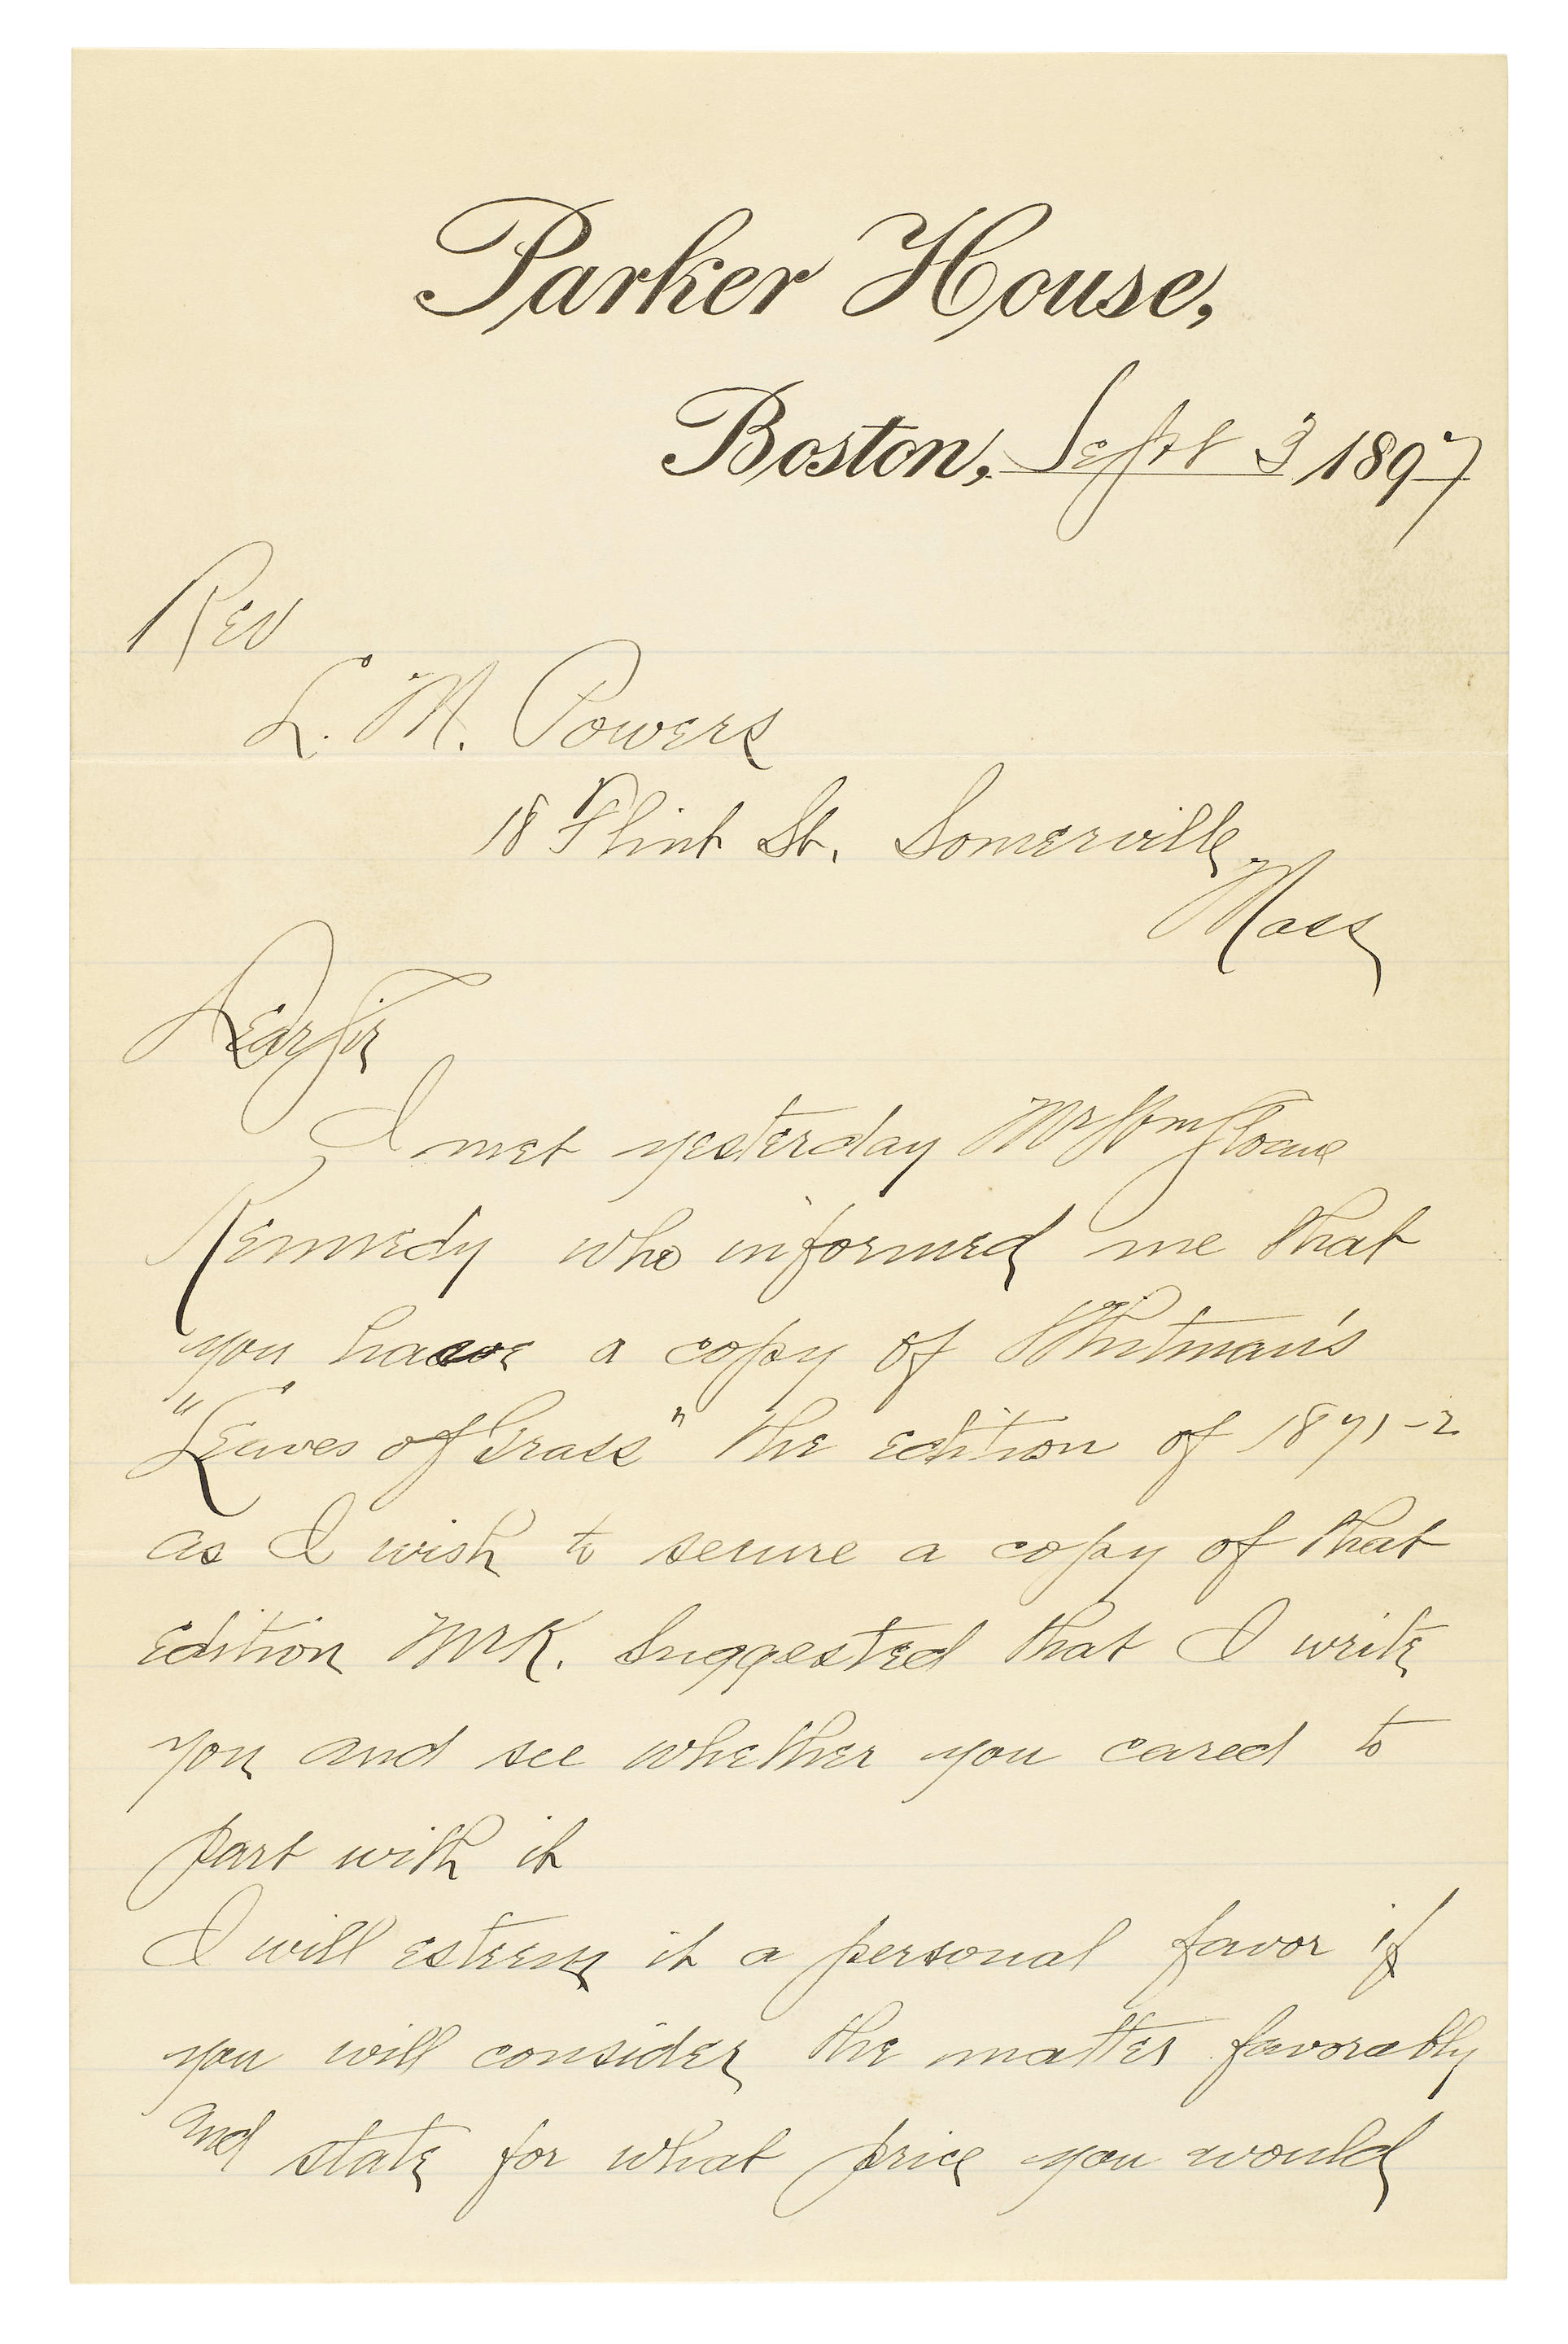 Parker House,
Boston, Sept 3 1897
Rev
L. M. Powers
18 Flint St. Somerville
Mass
Dear Sir
I met yesterday Mr Wm Sloane
Kennedy who informed me that
you have a copy of Whitman's
"Leaves of Grass" the edition of 1871-2
as I wish to secure a copy of that
edition Mr K. Suggested that I write
you and see whether you cared to
part with it
I will esteem it a personal favor if
you will consider the matter favorably
and state for what price you would